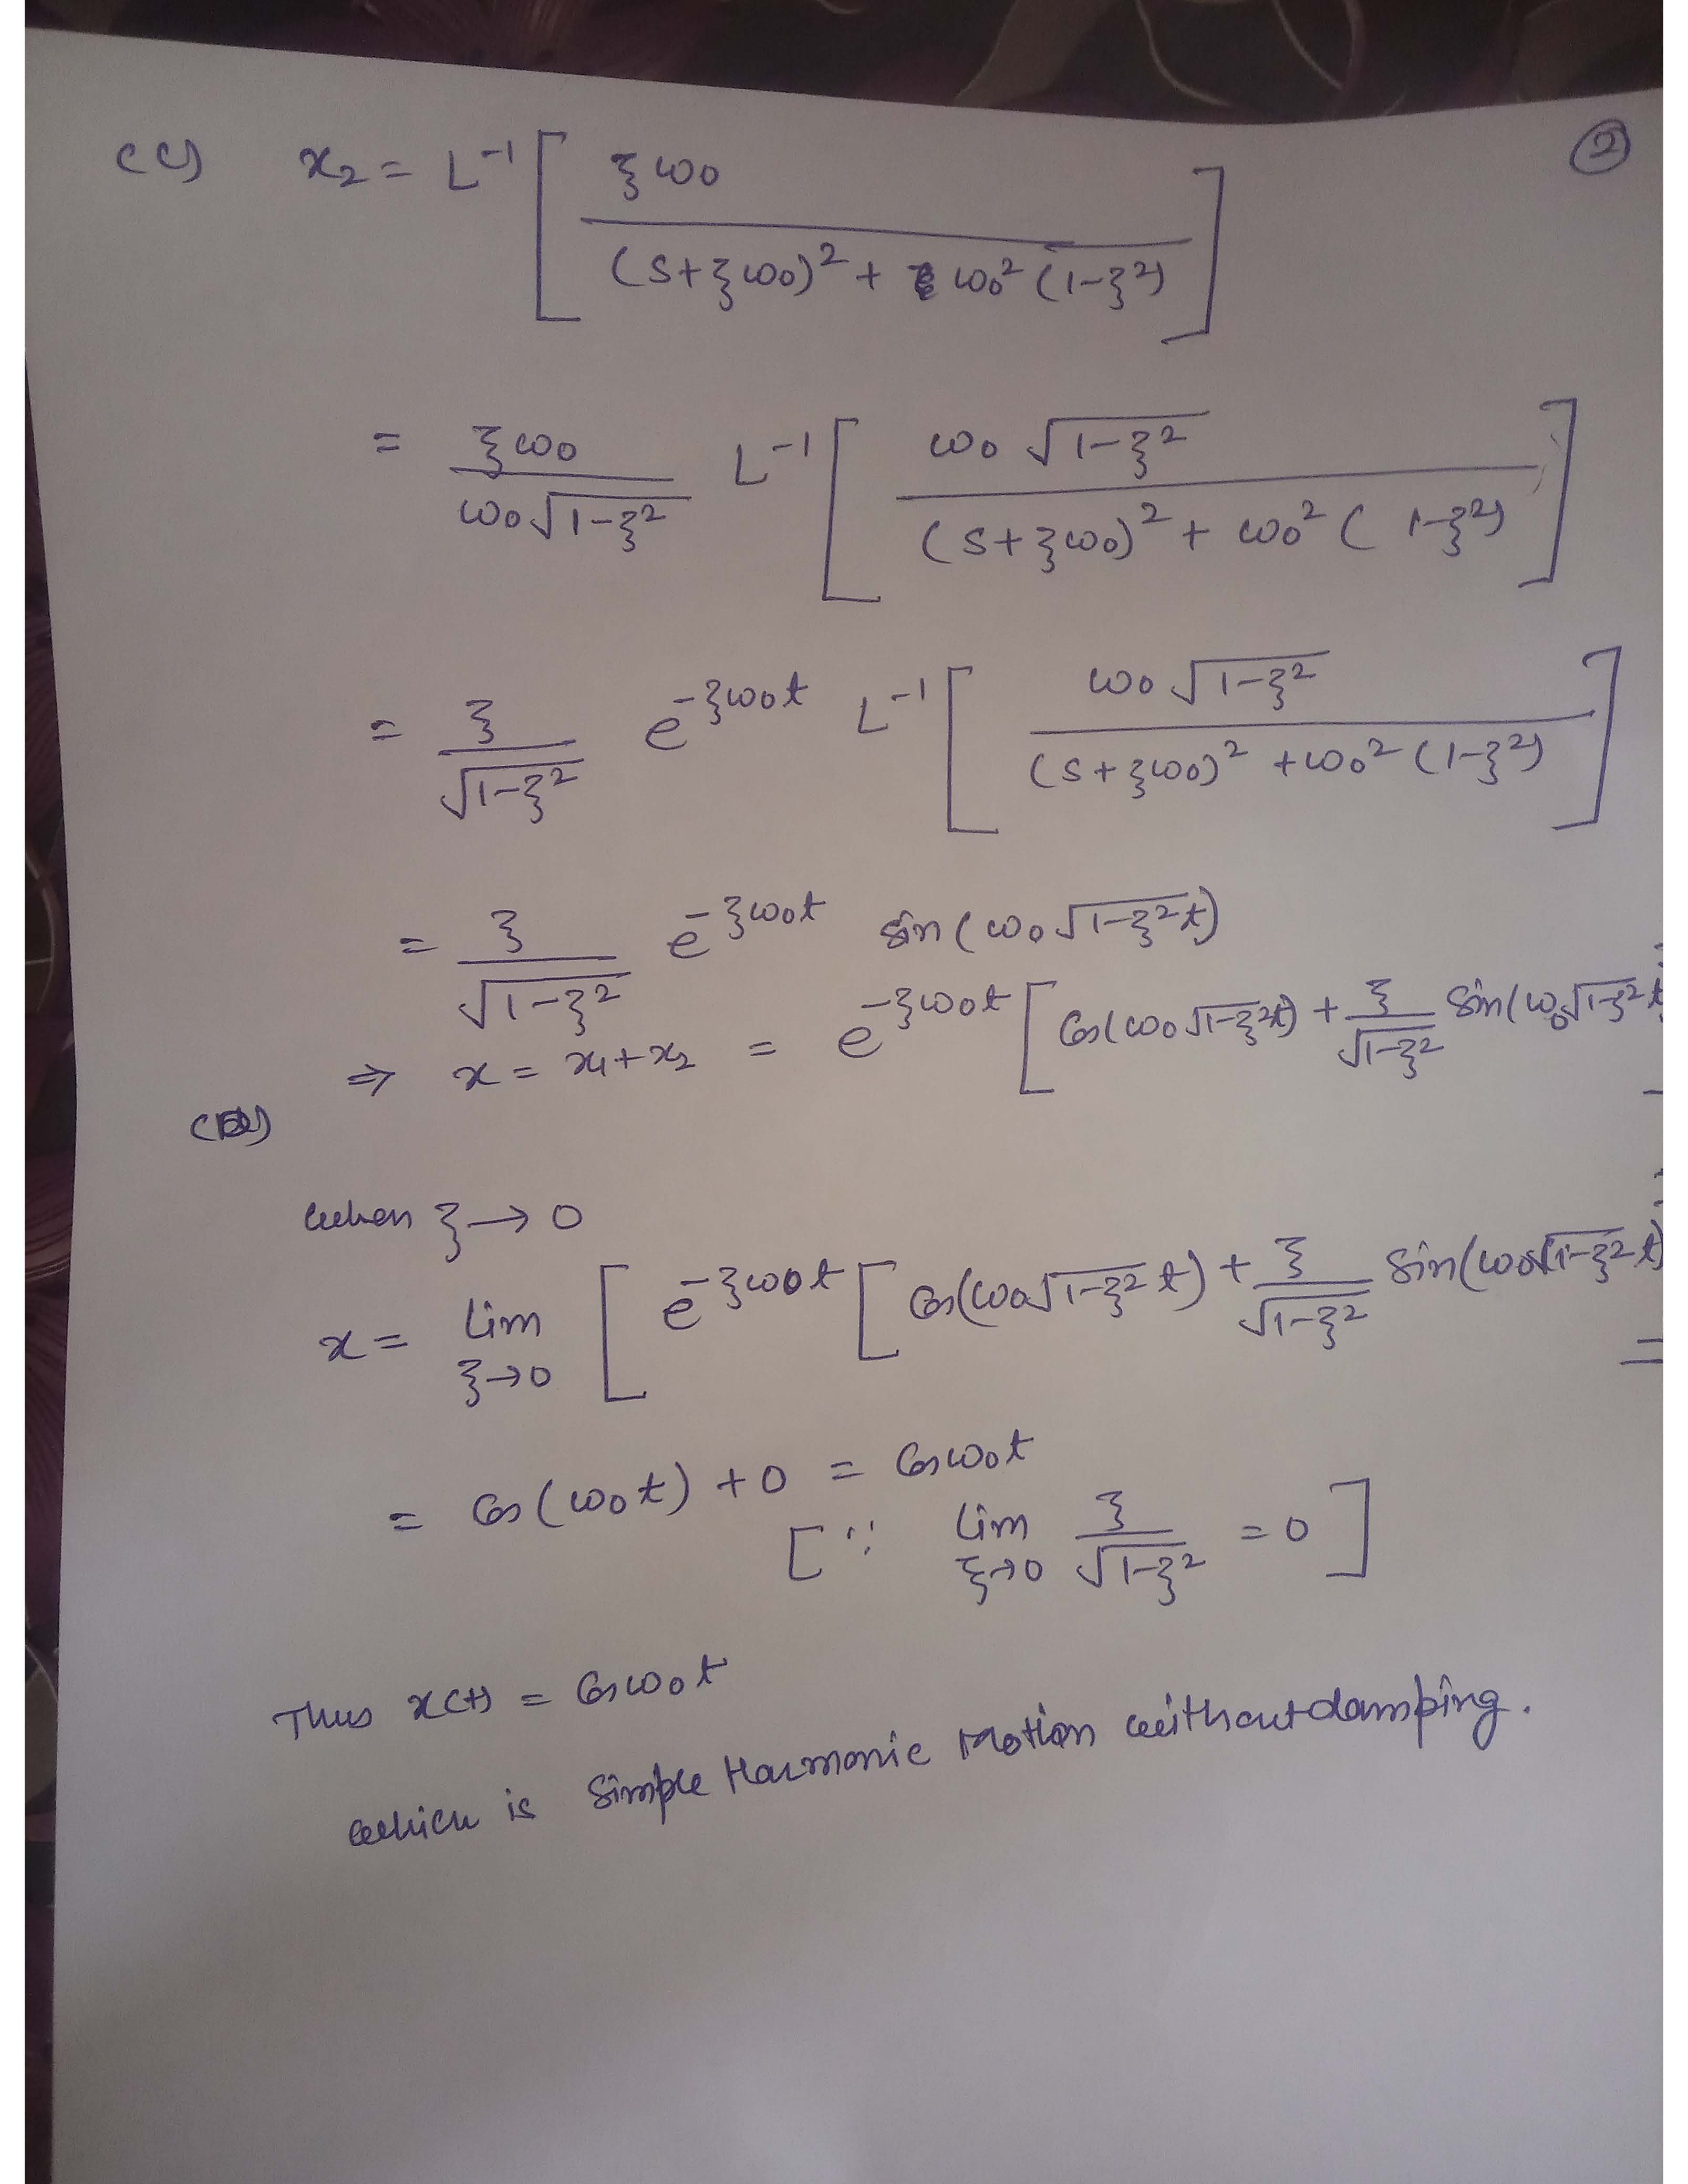 ②
(c) x₂ = L⁻¹ [ ξω₀ / ((s+ξω₀)² + ω₀²(1-ξ²)) ]
= ξω₀ / (ω₀√(1-ξ²)) L⁻¹ [ ω₀√(1-ξ²) / ((s+ξω₀)² + ω₀²(1-ξ²)) ]
= ξ / √(1-ξ²) e^(-ξω₀t) L⁻¹ [ ω₀√(1-ξ²) / ((s+ξω₀)² + ω₀²(1-ξ²)) ]
= ξ / √(1-ξ²) e^(-ξω₀t) sin(ω₀√(1-ξ²)t)
⇒ x = x₁+x₂ = e^(-ξω₀t) [ Cos(ω₀√(1-ξ²)t) + ξ / √(1-ξ²) Sin(ω₀√(1-ξ²)t
when ξ → 0
x = Lim ξ→0 [ e^(-ξω₀t) [ Cos(ω₀√(1-ξ²)t) + ξ / √(1-ξ²) Sin(ω₀√(1-ξ²)t)
= Cos(ω₀t) + 0 = Cosω₀t
[ ∵ Lim ξ→0 ξ / √(1-ξ²) = 0 ]
Thus x(t) = Cosω₀t
which is Simple Harmonic Motion without damping.